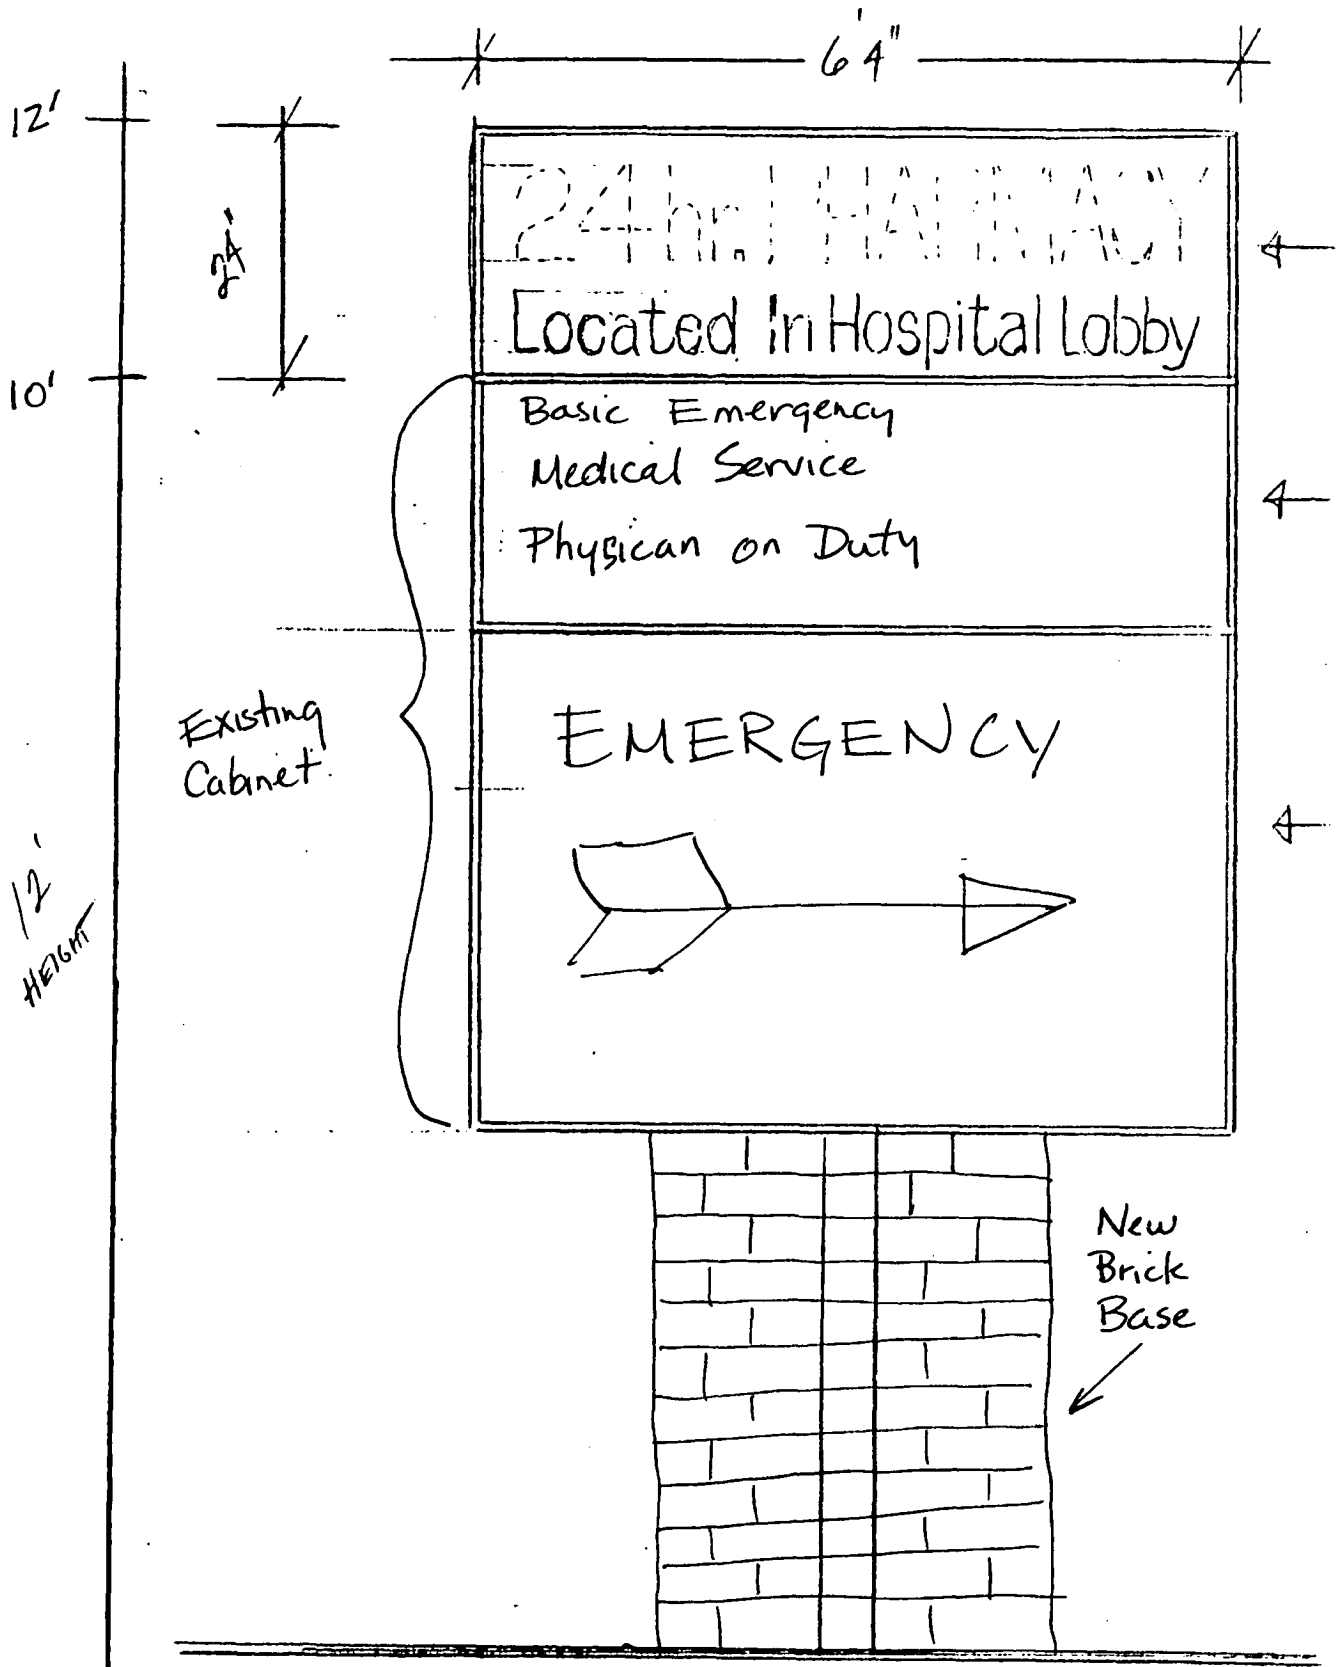 6'4"
12'
24"
24hr. PHARMACY
Located In Hospital Lobby
10'
Basic Emergency
Medical Service
Physican on Duty
Existing
Cabinet
EMERGENCY
12'
HEIGHT
New
Brick
Base